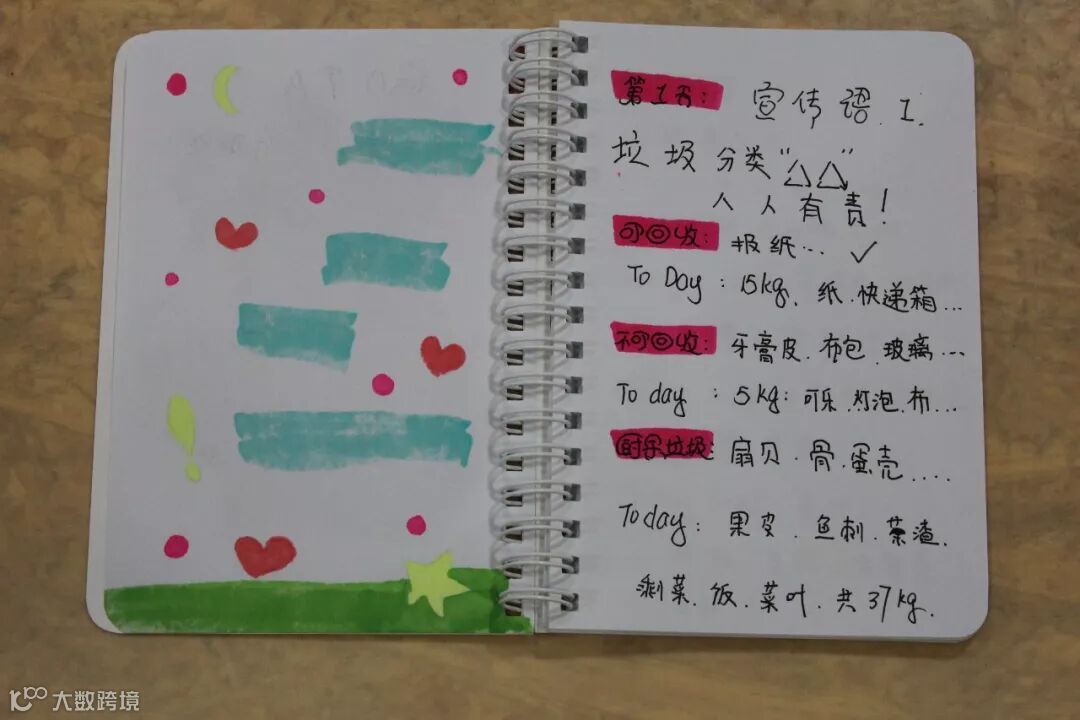 第1方: 宣传语.1.
垃圾分类"△△"
人人有责!
可回收: 报纸… ✓
To Day : 15kg、纸.快递箱…
不可回收: 牙膏皮.布包.玻璃…
To day : 5kg:可乐.灯泡.布…
厨余垃圾: 扇贝.骨.蛋壳....
Today: 果皮.鱼刺.茶渣.
剩菜.饭.菜叶.共37kg.
大数跨境